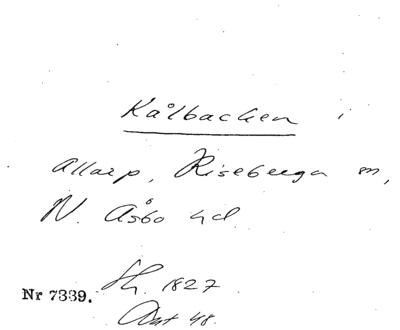 Kålbacken i
Allarp, Riseberga sn,
N. Åsbo hd.
Sk. 1827
Nr 7339.
Akt 48.